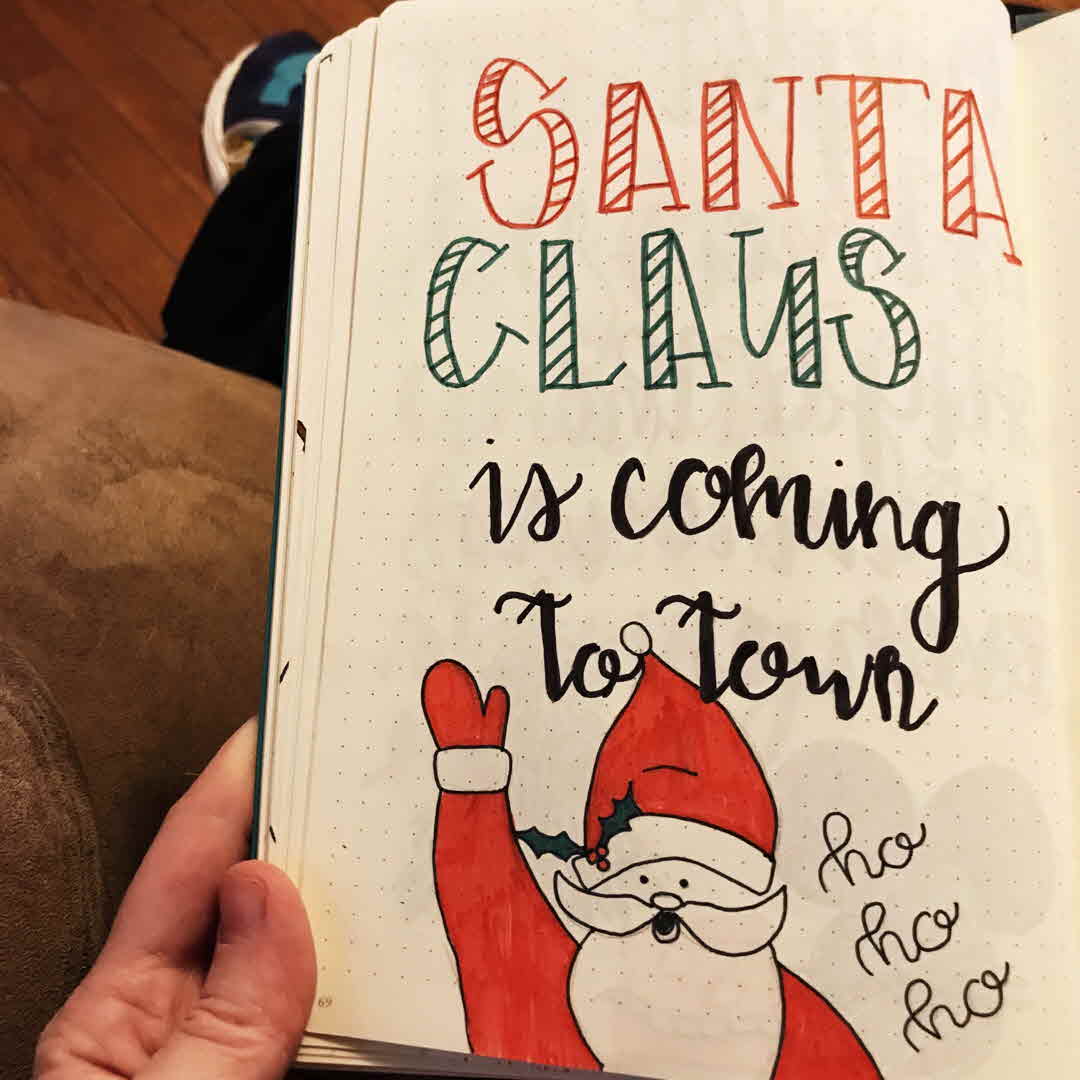 SANTA
CLAUS
is coming
to town
ho
ho
ho
69